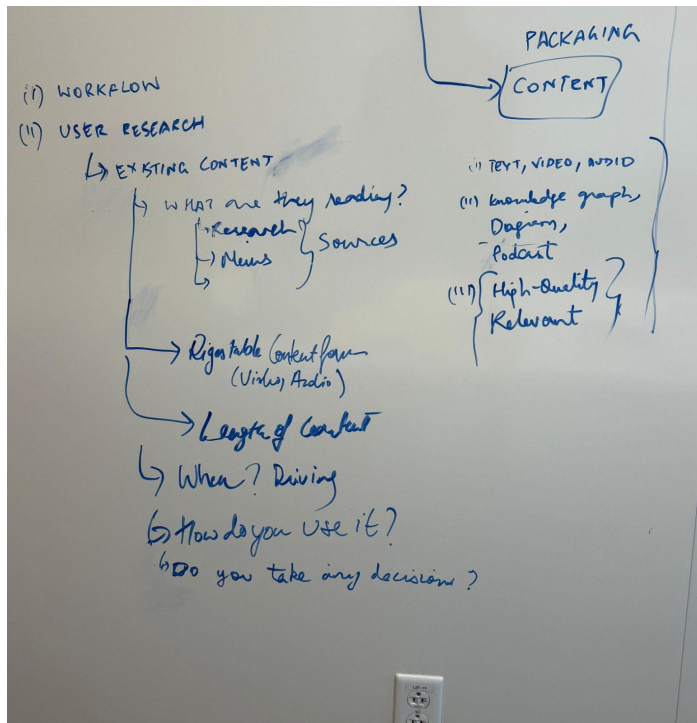 (i) WORKFLOW
(ii) USER RESEARCH
↳ EXISTING CONTENT
↳ WHAT are they reading?
Research
→ News
Sources
→ Digestable Content form
(Video, Audio)
→ Length of Content
↳ When? Driving
↳ How do you use it?
↳ Do you take any decisions?
PACKAGING
CONTENT
(i) TEXT, VIDEO, AUDIO
(ii) Knowledge graph,
Diagram,
Podcast
(iii) High-Quality
Relevant